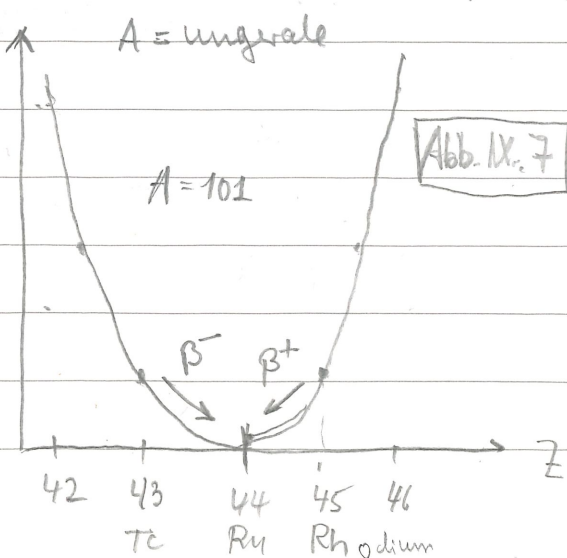 A = ungerade
Abb. IX. 7
A = 101
β⁻ β⁺
Z
42 43 44 45 46
Tc Ru Rhodium